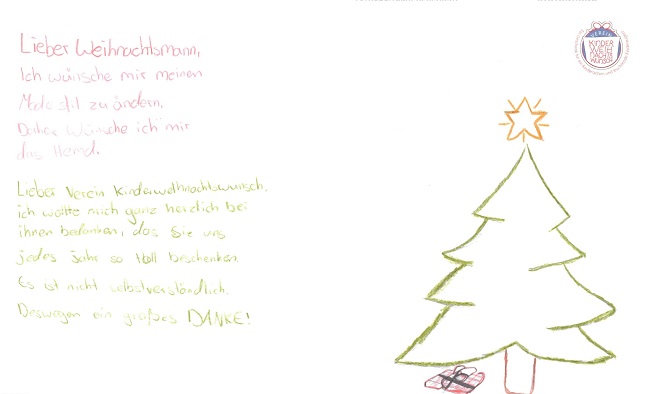 Lieber Weihnachtsmann,
Ich wünsche mir meinen
Mode stil zu ändern.
Daher wünsche ich mir
das Hemd.
Lieber Verein Kinderweihnachtswunsch,
ich wollte mich ganz herzlich bei
ihnen bedanken, das Sie uns
jedes Jahr so toll beschenken.
Es ist nicht selbstverständlich.
Deswegen ein großes DANKE!
VEREIN
KINDER
WEIH
NACHTS
WUNSCH